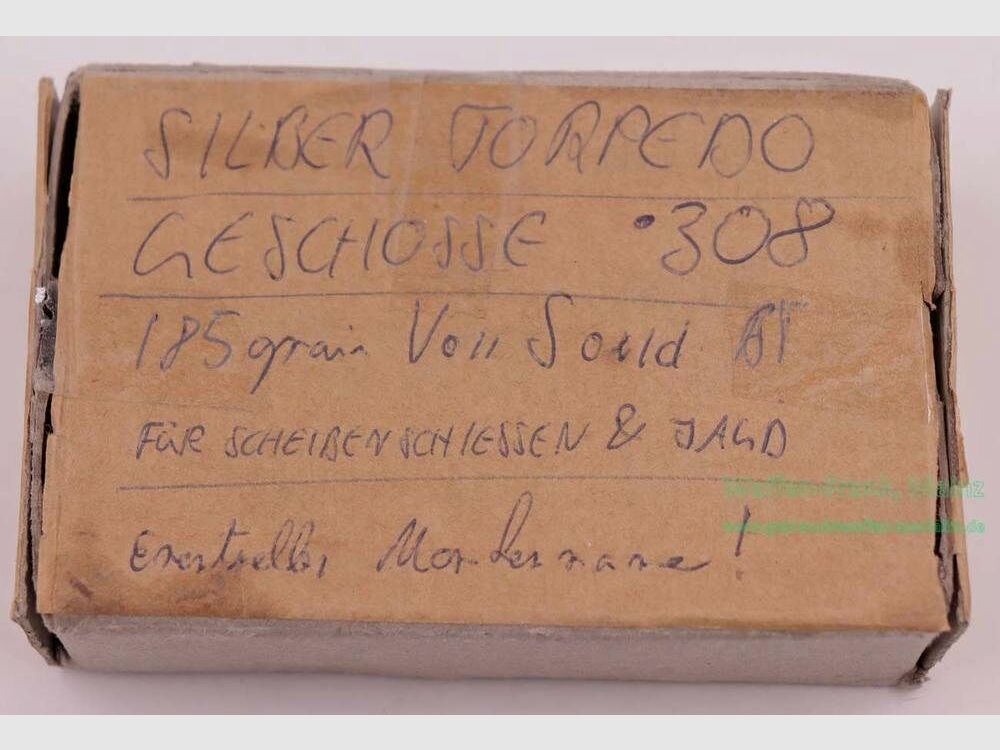 SILBER TORPEDO
GESCHOSSE .308
185 grain Voll Sould BT
FÜR SCHEIBENSCHIESSEN & JAGD
Eventueller Markenname!
Waffen-Frank, Mainz
www.gebrauchtwaffen-mainz.de